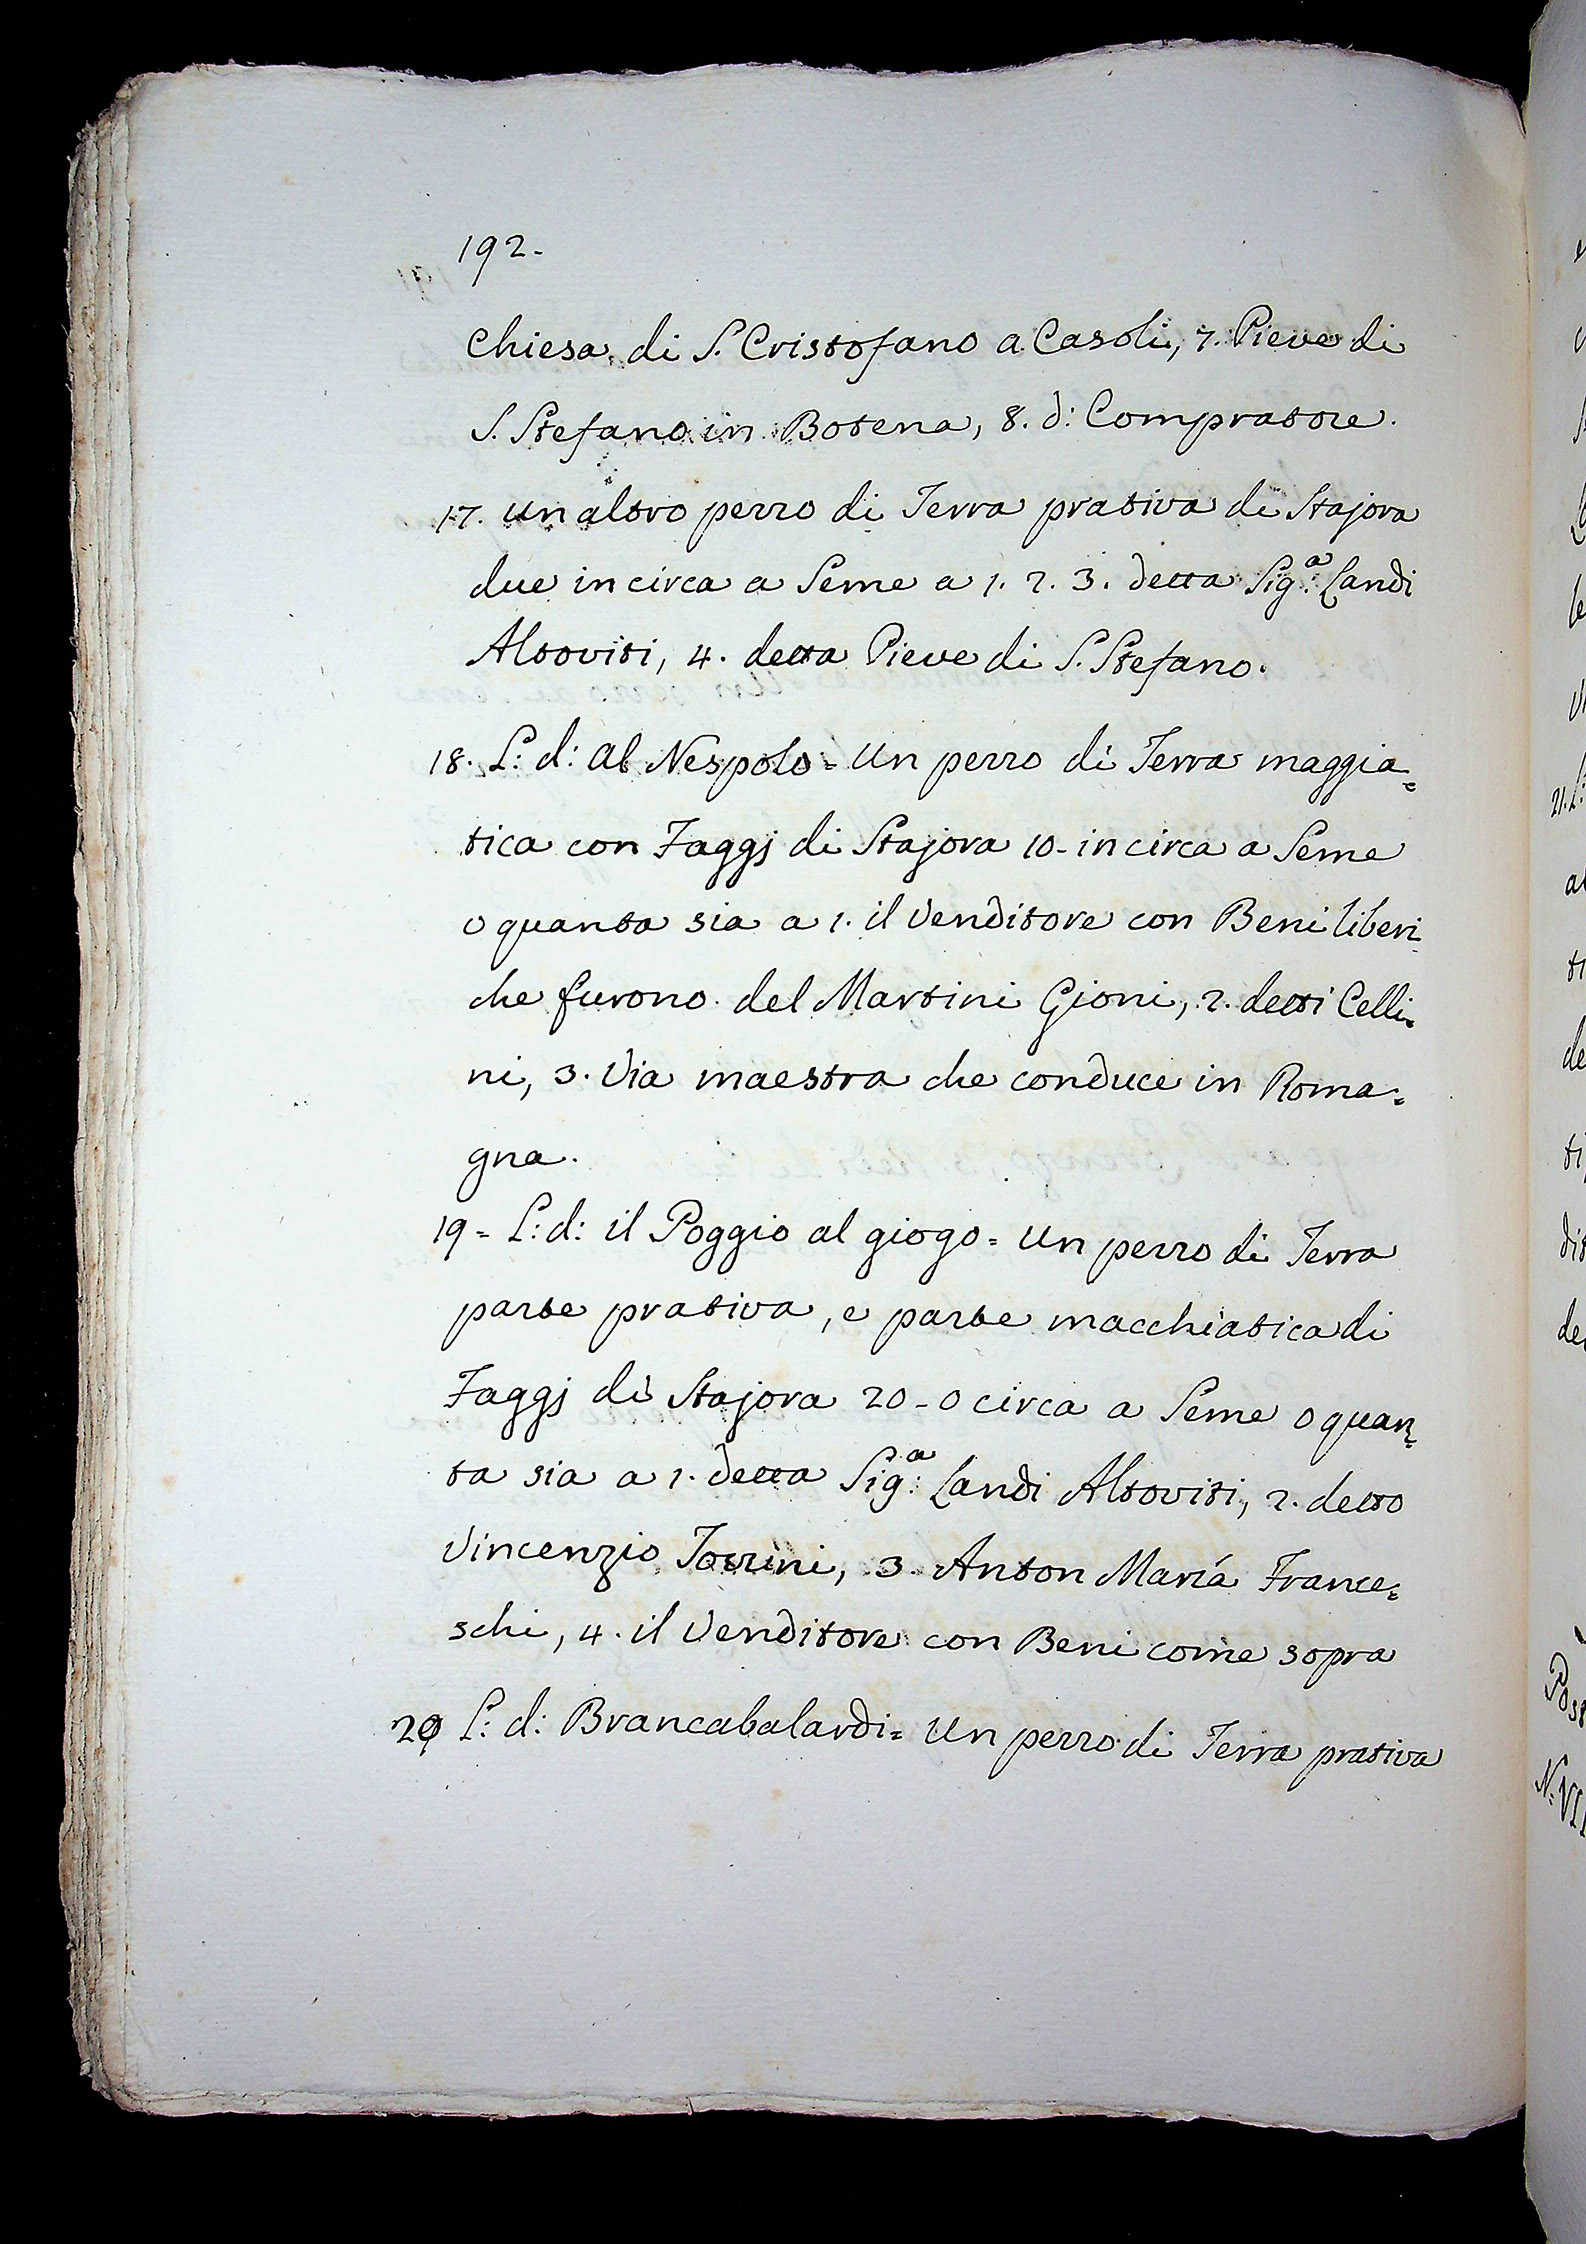 192.
Chiesa di S. Cristofano a Casoli, 7. Pieve di
S. Stefano in Botena, 8. d: Compratore.
17. Un altro pezzo di Terra prativa di Stajora
due in circa a Seme a 1. 2. 3. detta Sig.ª Landi
Altoviti, 4. detta Pieve di S. Stefano.
18. L: d: al Nespolo = Un pezzo di Terra maggia=
tica con Faggj di Stajora 10- in circa a Seme
o quanta sia a 1. il Venditore con Beni liberi
che furono del Martini Gioni, 2. detti Celli=
ni, 3. Via maestra che conduce in Roma=
gna.
19= L: d: il Poggio al giogo = Un pezzo di Terra
parte prativa, e parte macchiatica di
Faggj di Stajora 20- o circa a Seme o quan=
ta sia a 1. detta Sig:ª Landi Altoviti, 2. detto
Vincenzio 3. Anton Maria France=
schi, 4. il Venditore con Beni come sopra
20 L: d: Brancabalardi = Un pezzo di Terra prativa
21. L: